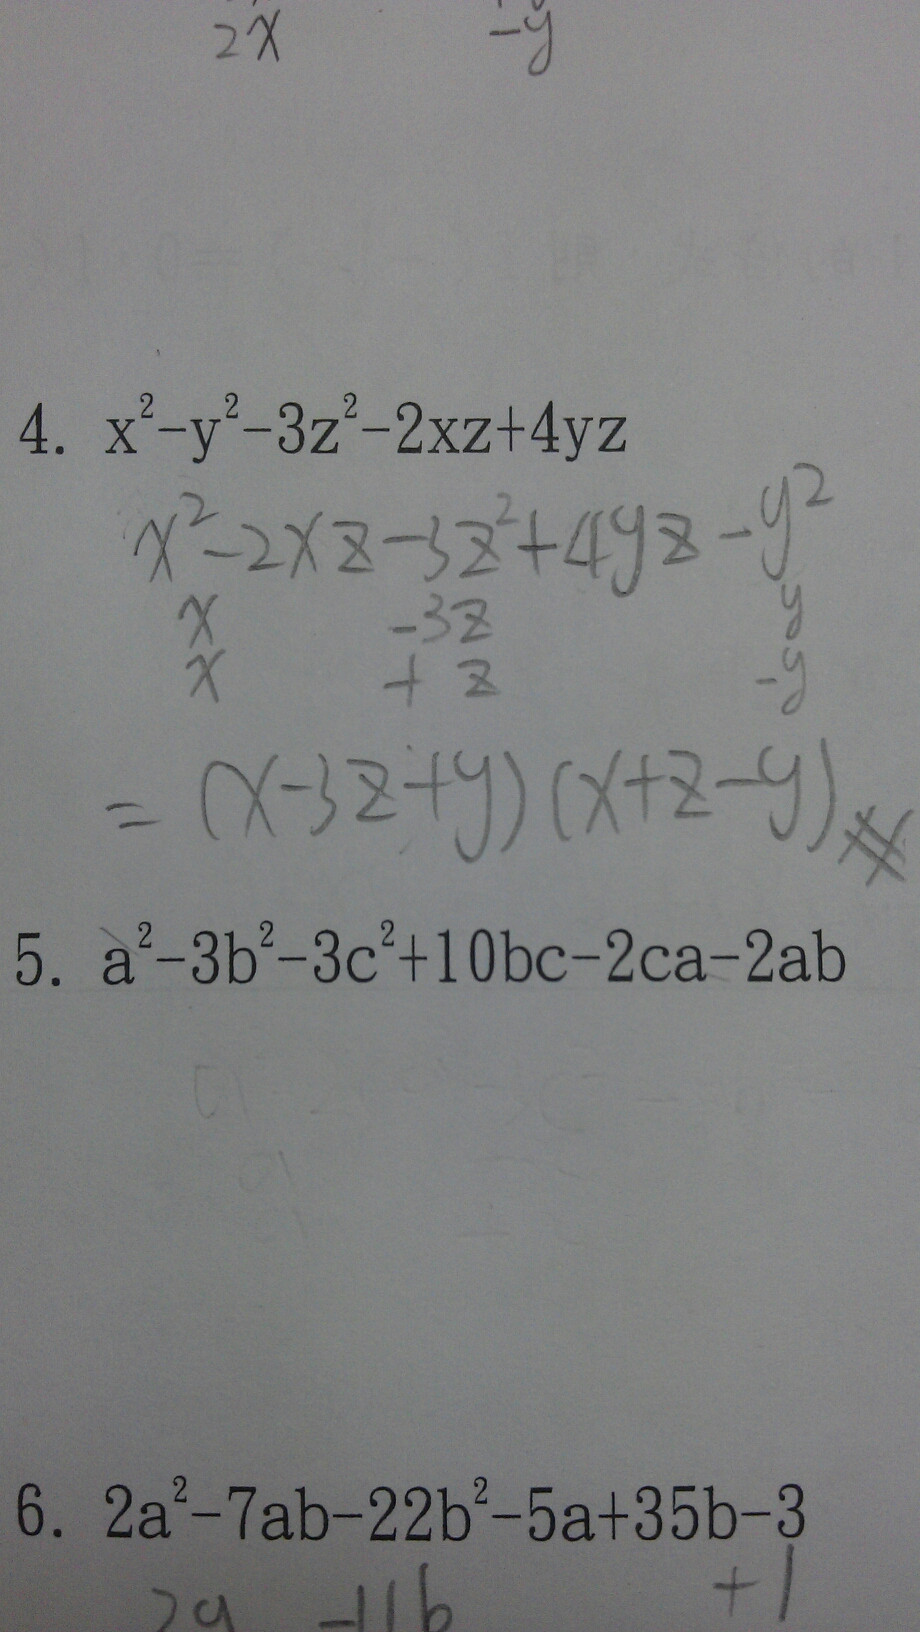 2x -y
4. x²-y²-3z²-2xz+4yz
x²-2xz-3z²+4yz-y²
x -3z y
x + z -y
= (x-3z+y)(x+z-y)
5. a²-3b²-3c²+10bc-2ca-2ab
6. 2a²-7ab-22b²-5a+35b-3
2a -11b +1